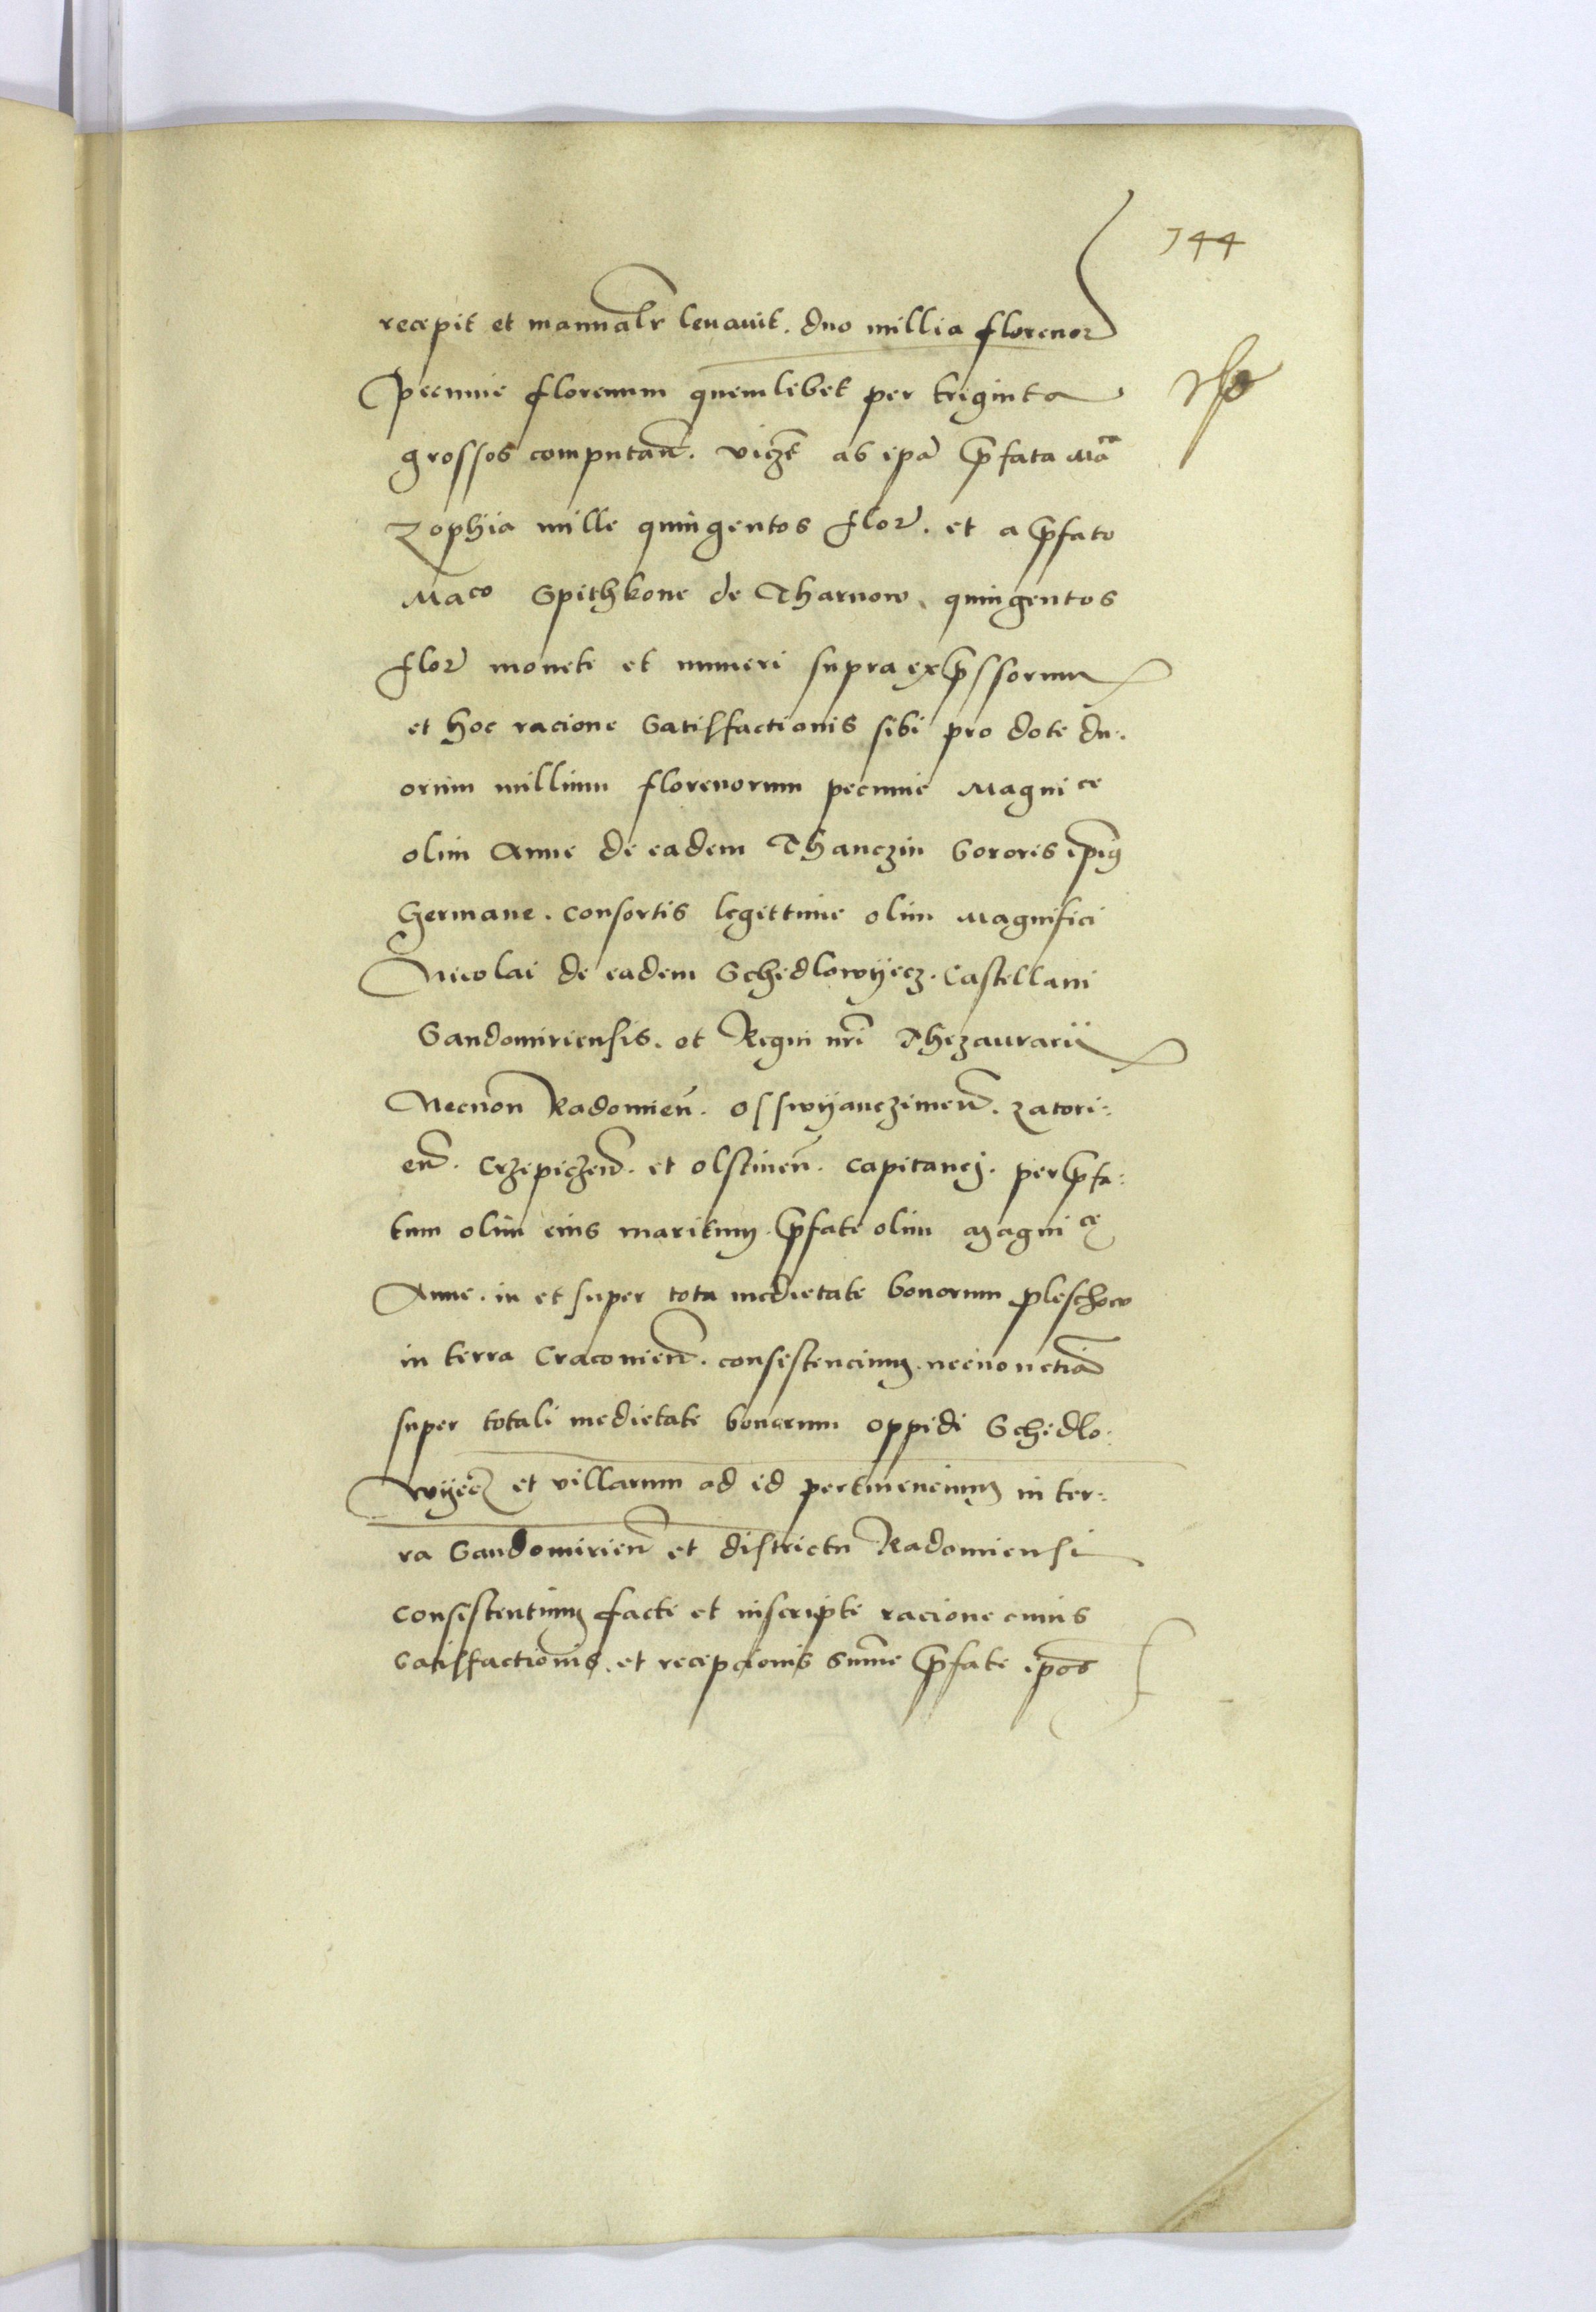 144
recepit et manualr levavit. duo millia florenor
pecunie florenum quemlibet per triginta
grossos computan. vidzt ab ipa pfata Mca
Zophia mille quingentos flor. et a pfato
Maco Spithkone de Tharnow. quingentos
flor monete et numeri supra expssorum
et hoc racione satisfactionis sibi pro dote du.
orum millium florenorum pecunie Magnice
olim Anne de eadem Thanczin sororis ipius
Germane. consortis legittime olim Magnifici
Nicolai de eadem Schidlowyecz. Castellani
Sandomiriensis. et Regni nri Thezaurarii
Necnon Radomien. Osswyanczimen. Zatori:
en. Crzepiczen. et Olstinen. capitanei. per pfa:
tum olim eius maritum. pfate olim Magnice
Anne. in et super tota medietate bonorum Pleschow
in terra Cracovien. consistencium. necnon etia
super totali medietate bonorum oppidi Schidlo:
wyecz et villarum ad id pertinencium in ter:
ra Sandomirien et districtu Radomiensi
consistentium facte et inscripte racione cuius
satisfactionis. et recepcionis summe pfate ipos